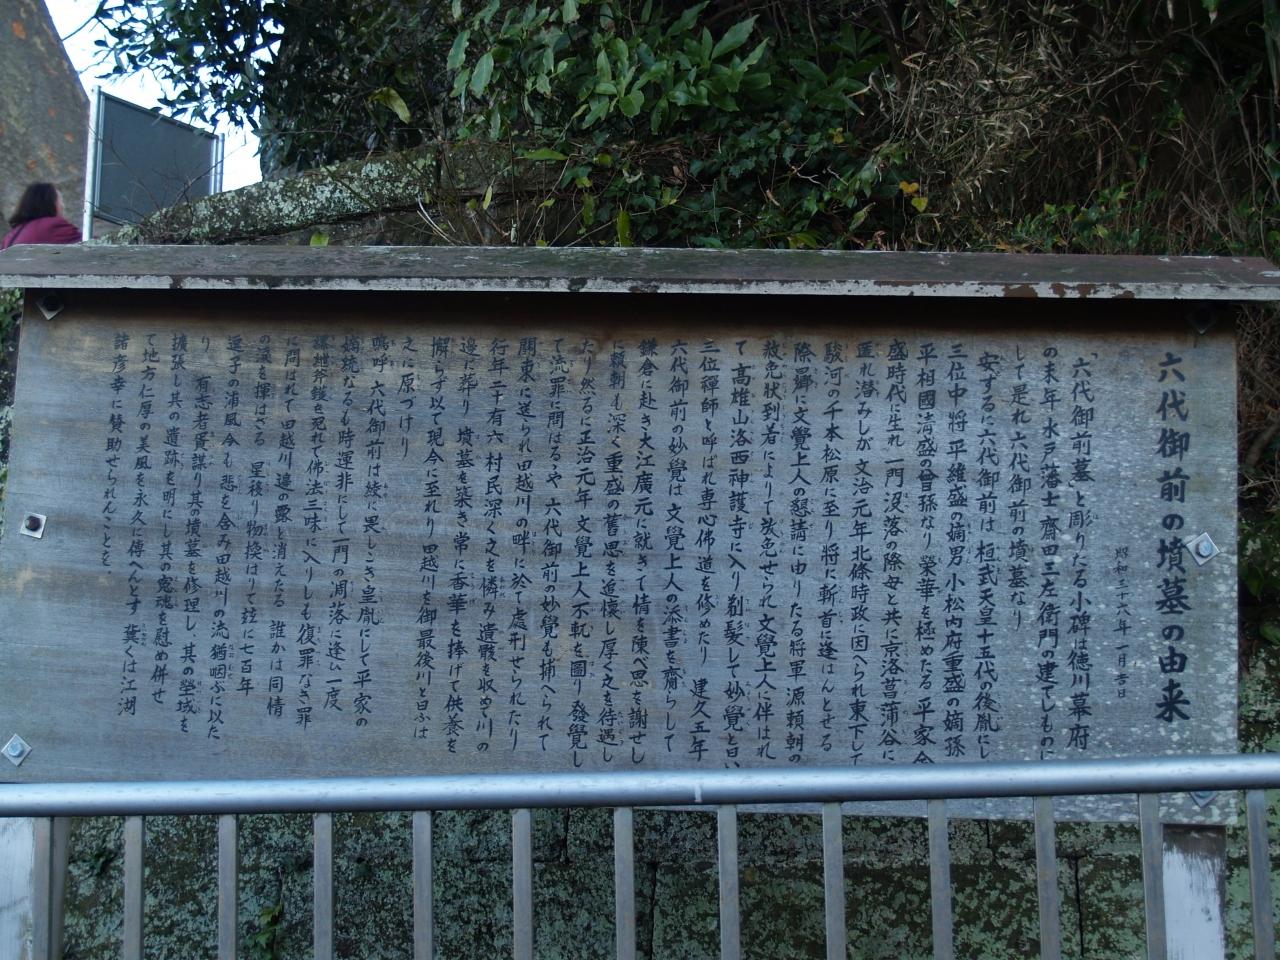 六代御前の墳墓の由来
昭和三十六年一月吉日
「六代御前墓」と彫りたる小碑は徳川幕府
の末年水戸藩士齋田三左衛門の建てしものに
して是れ六代御前の墳墓なり
安ずるに六代御前は桓武天皇十五代の後胤にし
三位中将平維盛の嫡男小松内府重盛の嫡孫
平相國清盛の曽孫なり榮華を極めたる平家全
盛時代に生れ一門沒落の際母と共に京洛菖蒲谷に
匿れ潜みしが文治元年北條時政に囚へられ東下して
駿河の千本松原に至り将に斬首に逢はんとせる
際端に文覺上人の懇請に由りたる将軍源頼朝の
赦免状到着によりて放免せられ文覺上人に伴はれ
て高雄山洛西神護寺に入り剃髪して妙覺と曰い
三位禪師と呼ばれ専心佛道を修めたり 建久五年
六代御前の妙覺は文覺上人の添書を齎らして
鎌倉に赴き大江廣元に就きて情を陳べ恩を謝せし
に頼朝も深く重盛の舊恩を追懐し厚く之を待遇し
たり然るに正治元年文覺上人不軌を圖り發覺し
て流罪に問はるゝや六代御前の妙覺も捕へられて
關東に送られ田越川の畔に於て處刑せられたり
行年二十有六村民深く之を憐み遺骸を収めて川の
邊に葬り墳墓を築き常に香華を捧げて供養を
懈らず以て現今に至れり田越川を御最後川と曰ふは
之に原づけり
嗚呼六代御前は綾に畏しこき皇胤にして平家の
嫡統なるも時運非にして一門の凋落に逢ひ一度
縲紲斧鉞を免れて佛法三昧に入りしも復罪なき罪
に問はれて田越川邊の露と消えたる誰かは同情
の涙を揮はざる 星移り物換はりて茲に七百年
逗子の浦風今も悲を含み田越川の流猶咽ぶに以た
り 有志者胥謀り其の墳墓を修理し、其の塋域を
擴張し其の遺跡を明にし其の寃魂を慰め併せ
て地方仁厚の美風を永久に傳へんとす 冀くは江湖
諸彦幸に賛助せられんことを